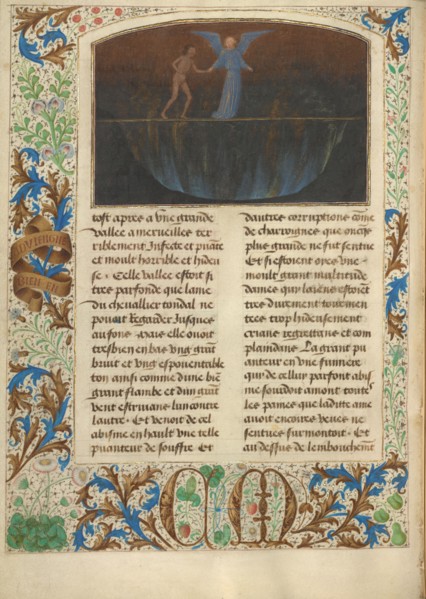 tost apres a vne grande
vallee a merueilles ter
riblement Infecte et puāte
et moult horrible et hideu
se. Celle vallee estoit si
tres parfonde que lame
du cheuallier tondal ne
pouoit regarder Jusques
au fons. Mais elle ouoit
tresbien en bas vng grāt
bruit et vng espouentable
ton ainsi comme dune biē
grant flambe et dun grāt
vent estriuans lun contre
lautre. Et venoit de cel
abisme en hault vne telle
puanteur de souffre et
dautres corruptions cōme
de charoignes que oncqs
plus grande ne fut sentue
Et si estoient oyes vne
moult grant multitude
dames qui laiens estoient
tres durement tourmen
tees trop hideusement
crians regrettans et com
plaindans La grant pu
anteur en vne fumiere
qui de cellui parfont abis
me sourdoit amont toutes
les paines que ladite ame
auoit encores veues ne
senties surmontoit. Et
au dessus de lemboucheure
BIEN EN
C M